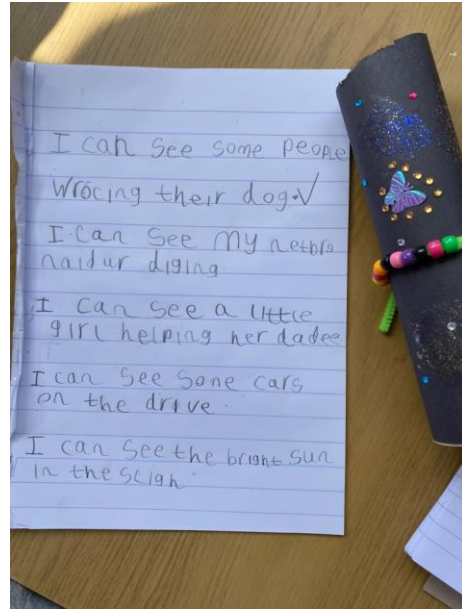 I can see some people
wrocing their dog.✓
I can see my nethra
naidur diging.
I can see a little
girl helping her dadee
I can see some cars
on the drive.
I can see the bright sun
in the scigh.